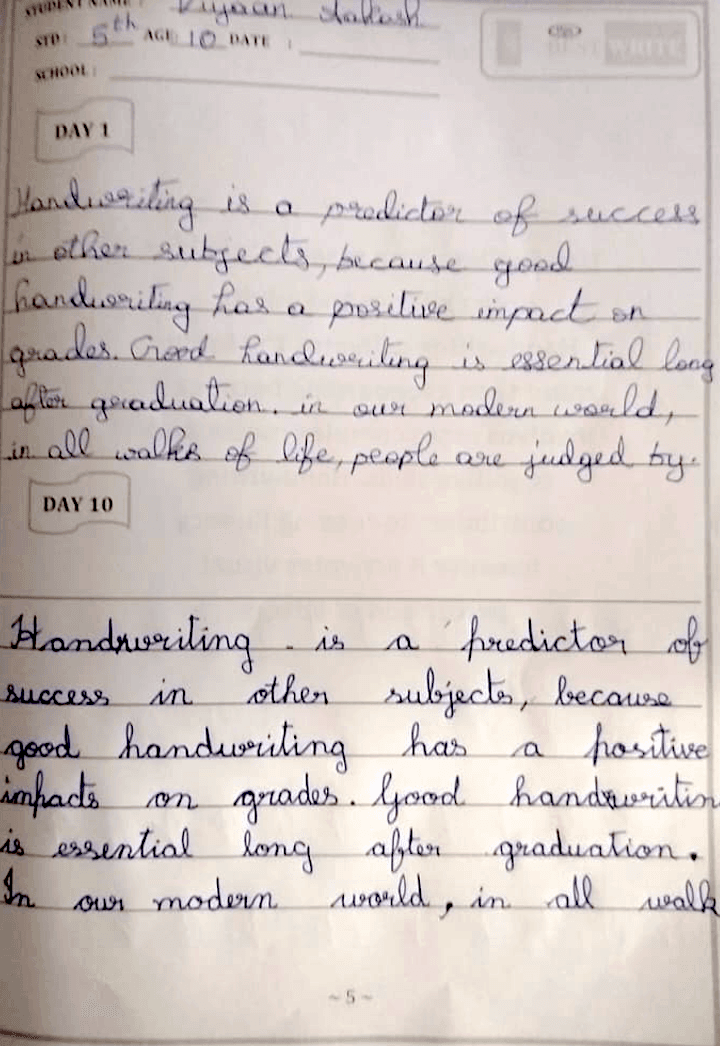 STUDENT NAME : Aakash
STD : 5th AGE 10 DATE :
SCHOOL :
WRITE
DAY 1
Handwriting is a predictor of success
in other subjects, because good
handwriting has a positive impact on
grades. Good handwriting is essential long
after graduation. in our modern world,
in all walks of life, people are judged by.
DAY 10
Handwriting is a predictor of
success in other subjects, because
good handwriting has a positive
impacts on grades. Good handwritin
is essential long after graduation.
In our modern world, in all walk
~ 5 ~